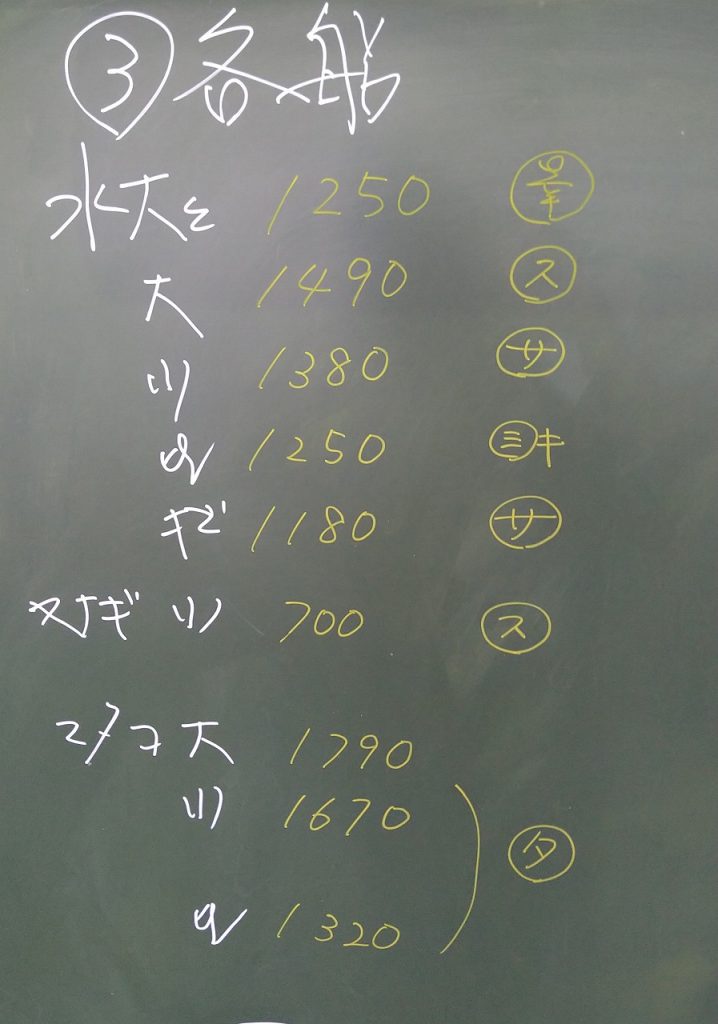 ③各船
水大 1250
大 1490 ス
小 1380 サ
1250 ミキ
1180 サ
小 700 ス
マダコ 大 1790
小 1670
タ
1320